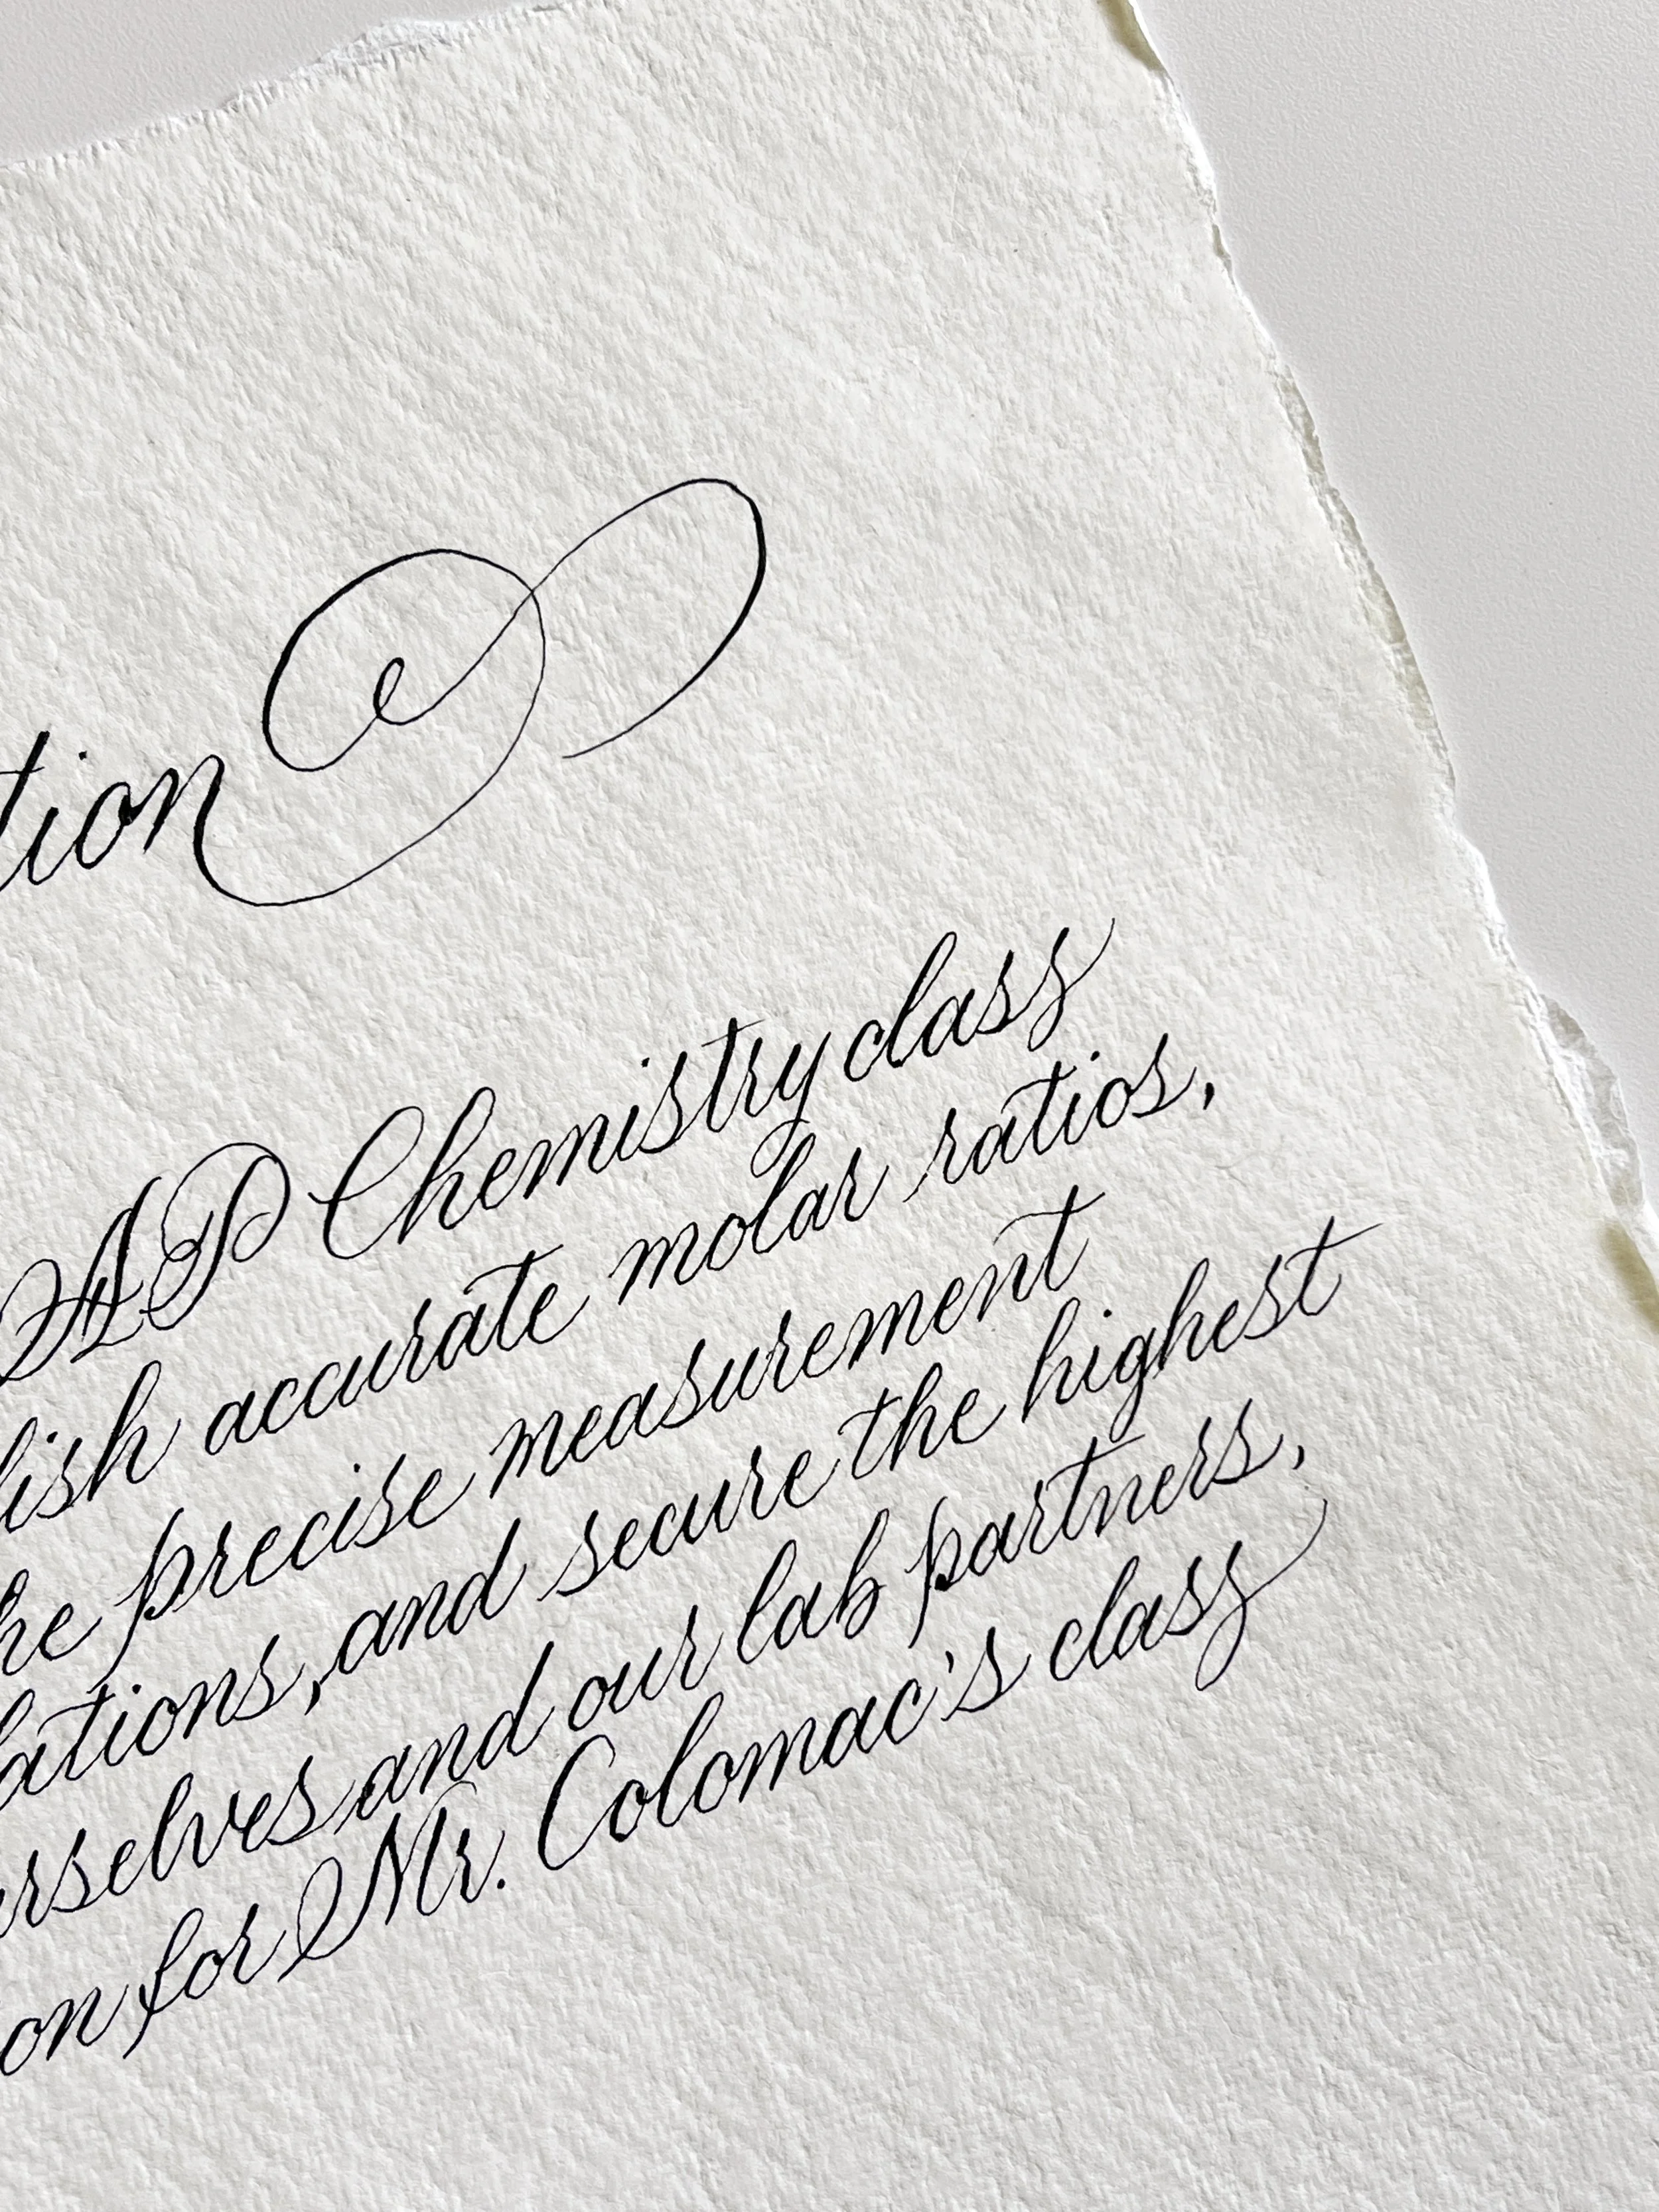 tion
AP Chemistry class
lish accurate molar ratios,
he precise measurement
lations, and secure the highest
urselves and our lab partners,
on for Mr. Colomac's class